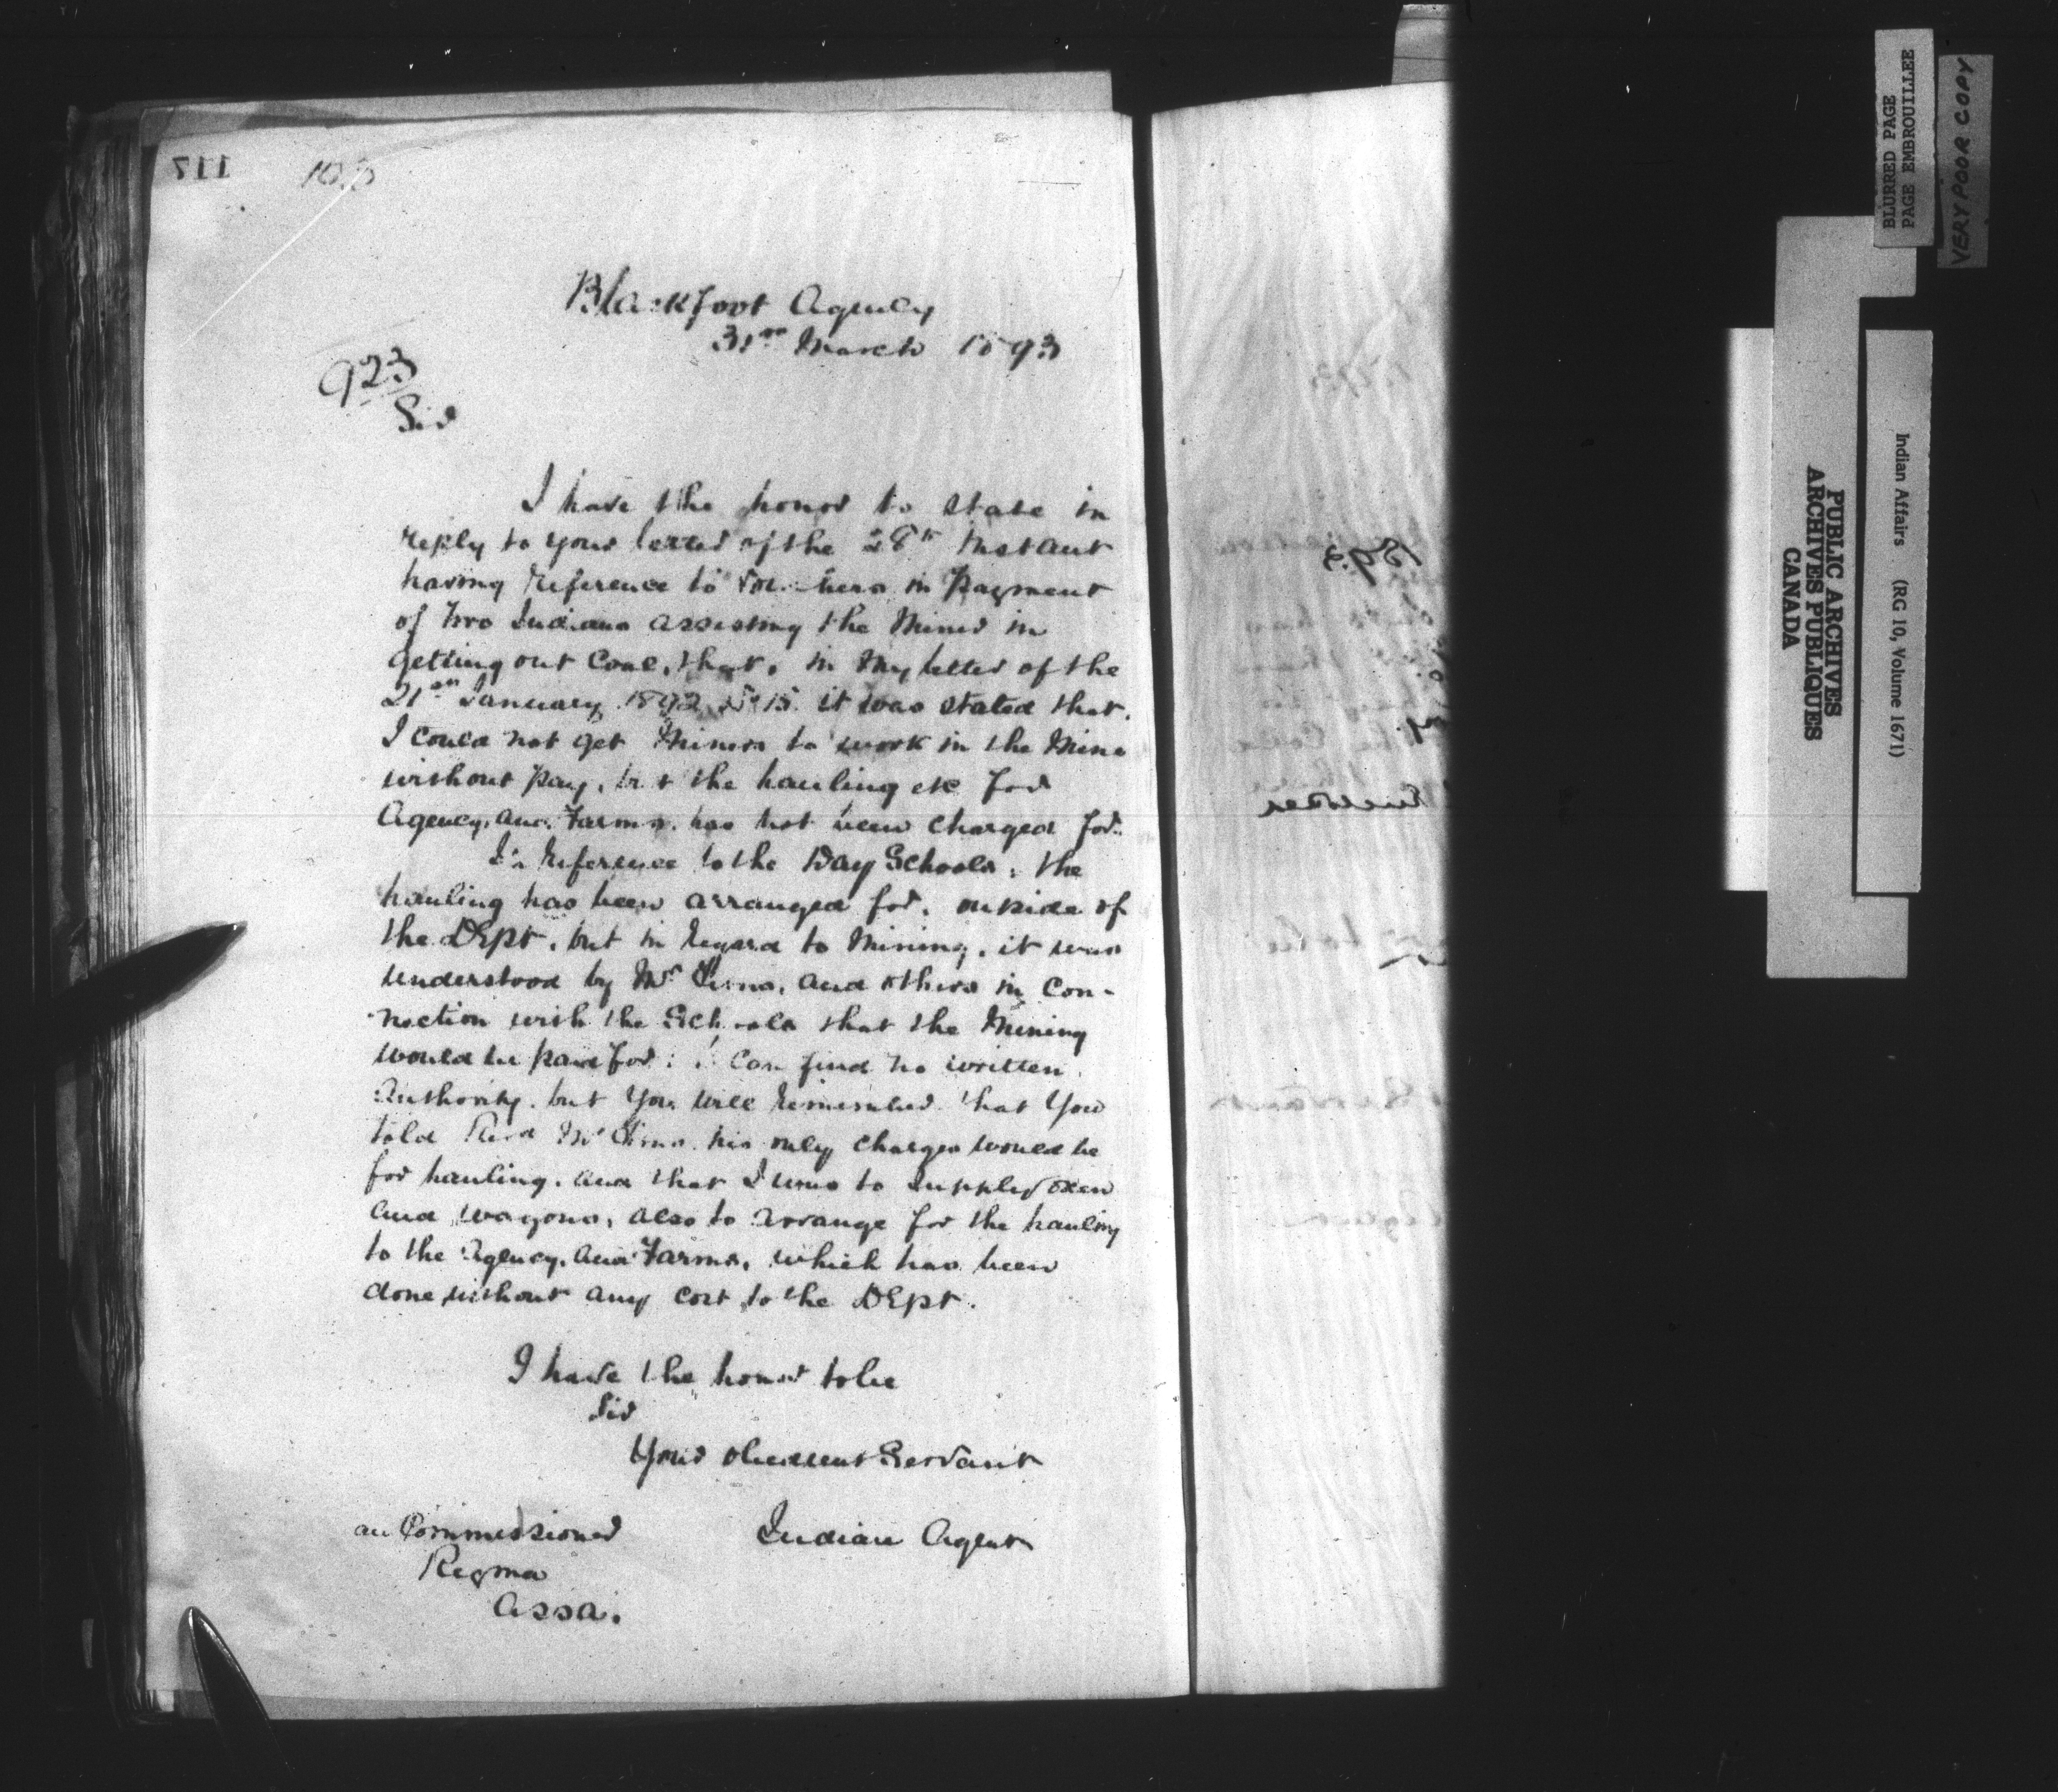 117
Blackfoot Agency
31st March 1893
923
Sir
I have the honor to state in
reply to your letter of the 28th instant
having reference to in payment
of two Indians assisting the Miner in
getting out Coal, that, in my letter of the
21st January 1892 No 15. it was stated that
I could not get Miners to work in the Mine
without pay, but the hauling etc for
Agency, and Farms, has not been charged for.
In reference to the Day Schools, the
hauling has been arranged for, outside of
the Dept, but in regard to Mining, it was
understood by Mr Tims, and others in con-
nection with the Schools that the Mining
would be paid for: I can find no written
Authority, but you will remember that you
told Revd Mr Tims his only charges would be
for hauling, and that I was to supply oxen
and wagons, also to arrange for the hauling
to the Agency, and Farms, which has been
done without any cost to the Dept.
I have the honor to be
Sir
Your obedient Servant
Indian Agent
Commissioner
Regina
Assa.
BLURRED PAGE
PAGE EMBROUILLEE
VERY POOR COPY
PUBLIC ARCHIVES
ARCHIVES PUBLIQUES
CANADA
Indian Affairs (RG 10, Volume 1671)